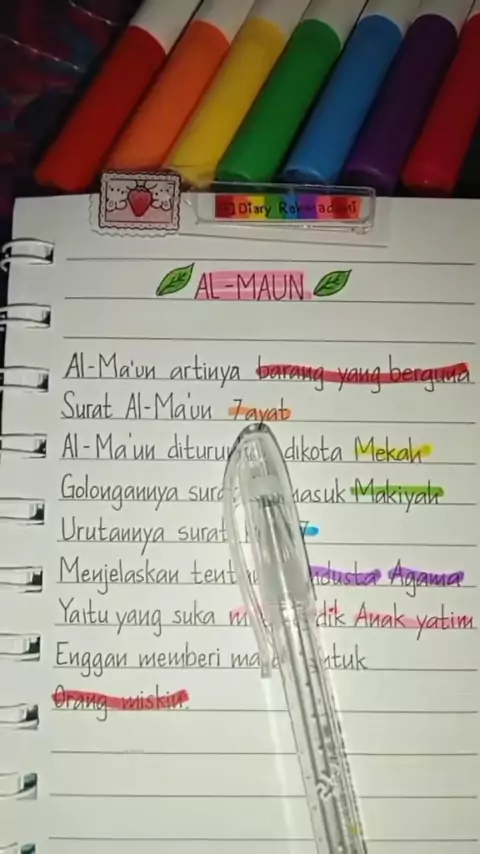 Diary Rahmadani
AL-MAUN
Al-Ma'un artinya barang yang berguna
Surat Al-Ma'un 7 ayat
Al-Ma'un dikota Mekah
Golongannya Makiyah
Urutannya surat
Menjelaskan Agama
Yaitu yang suka Anak yatim
Enggan memberi
Orang miskin.